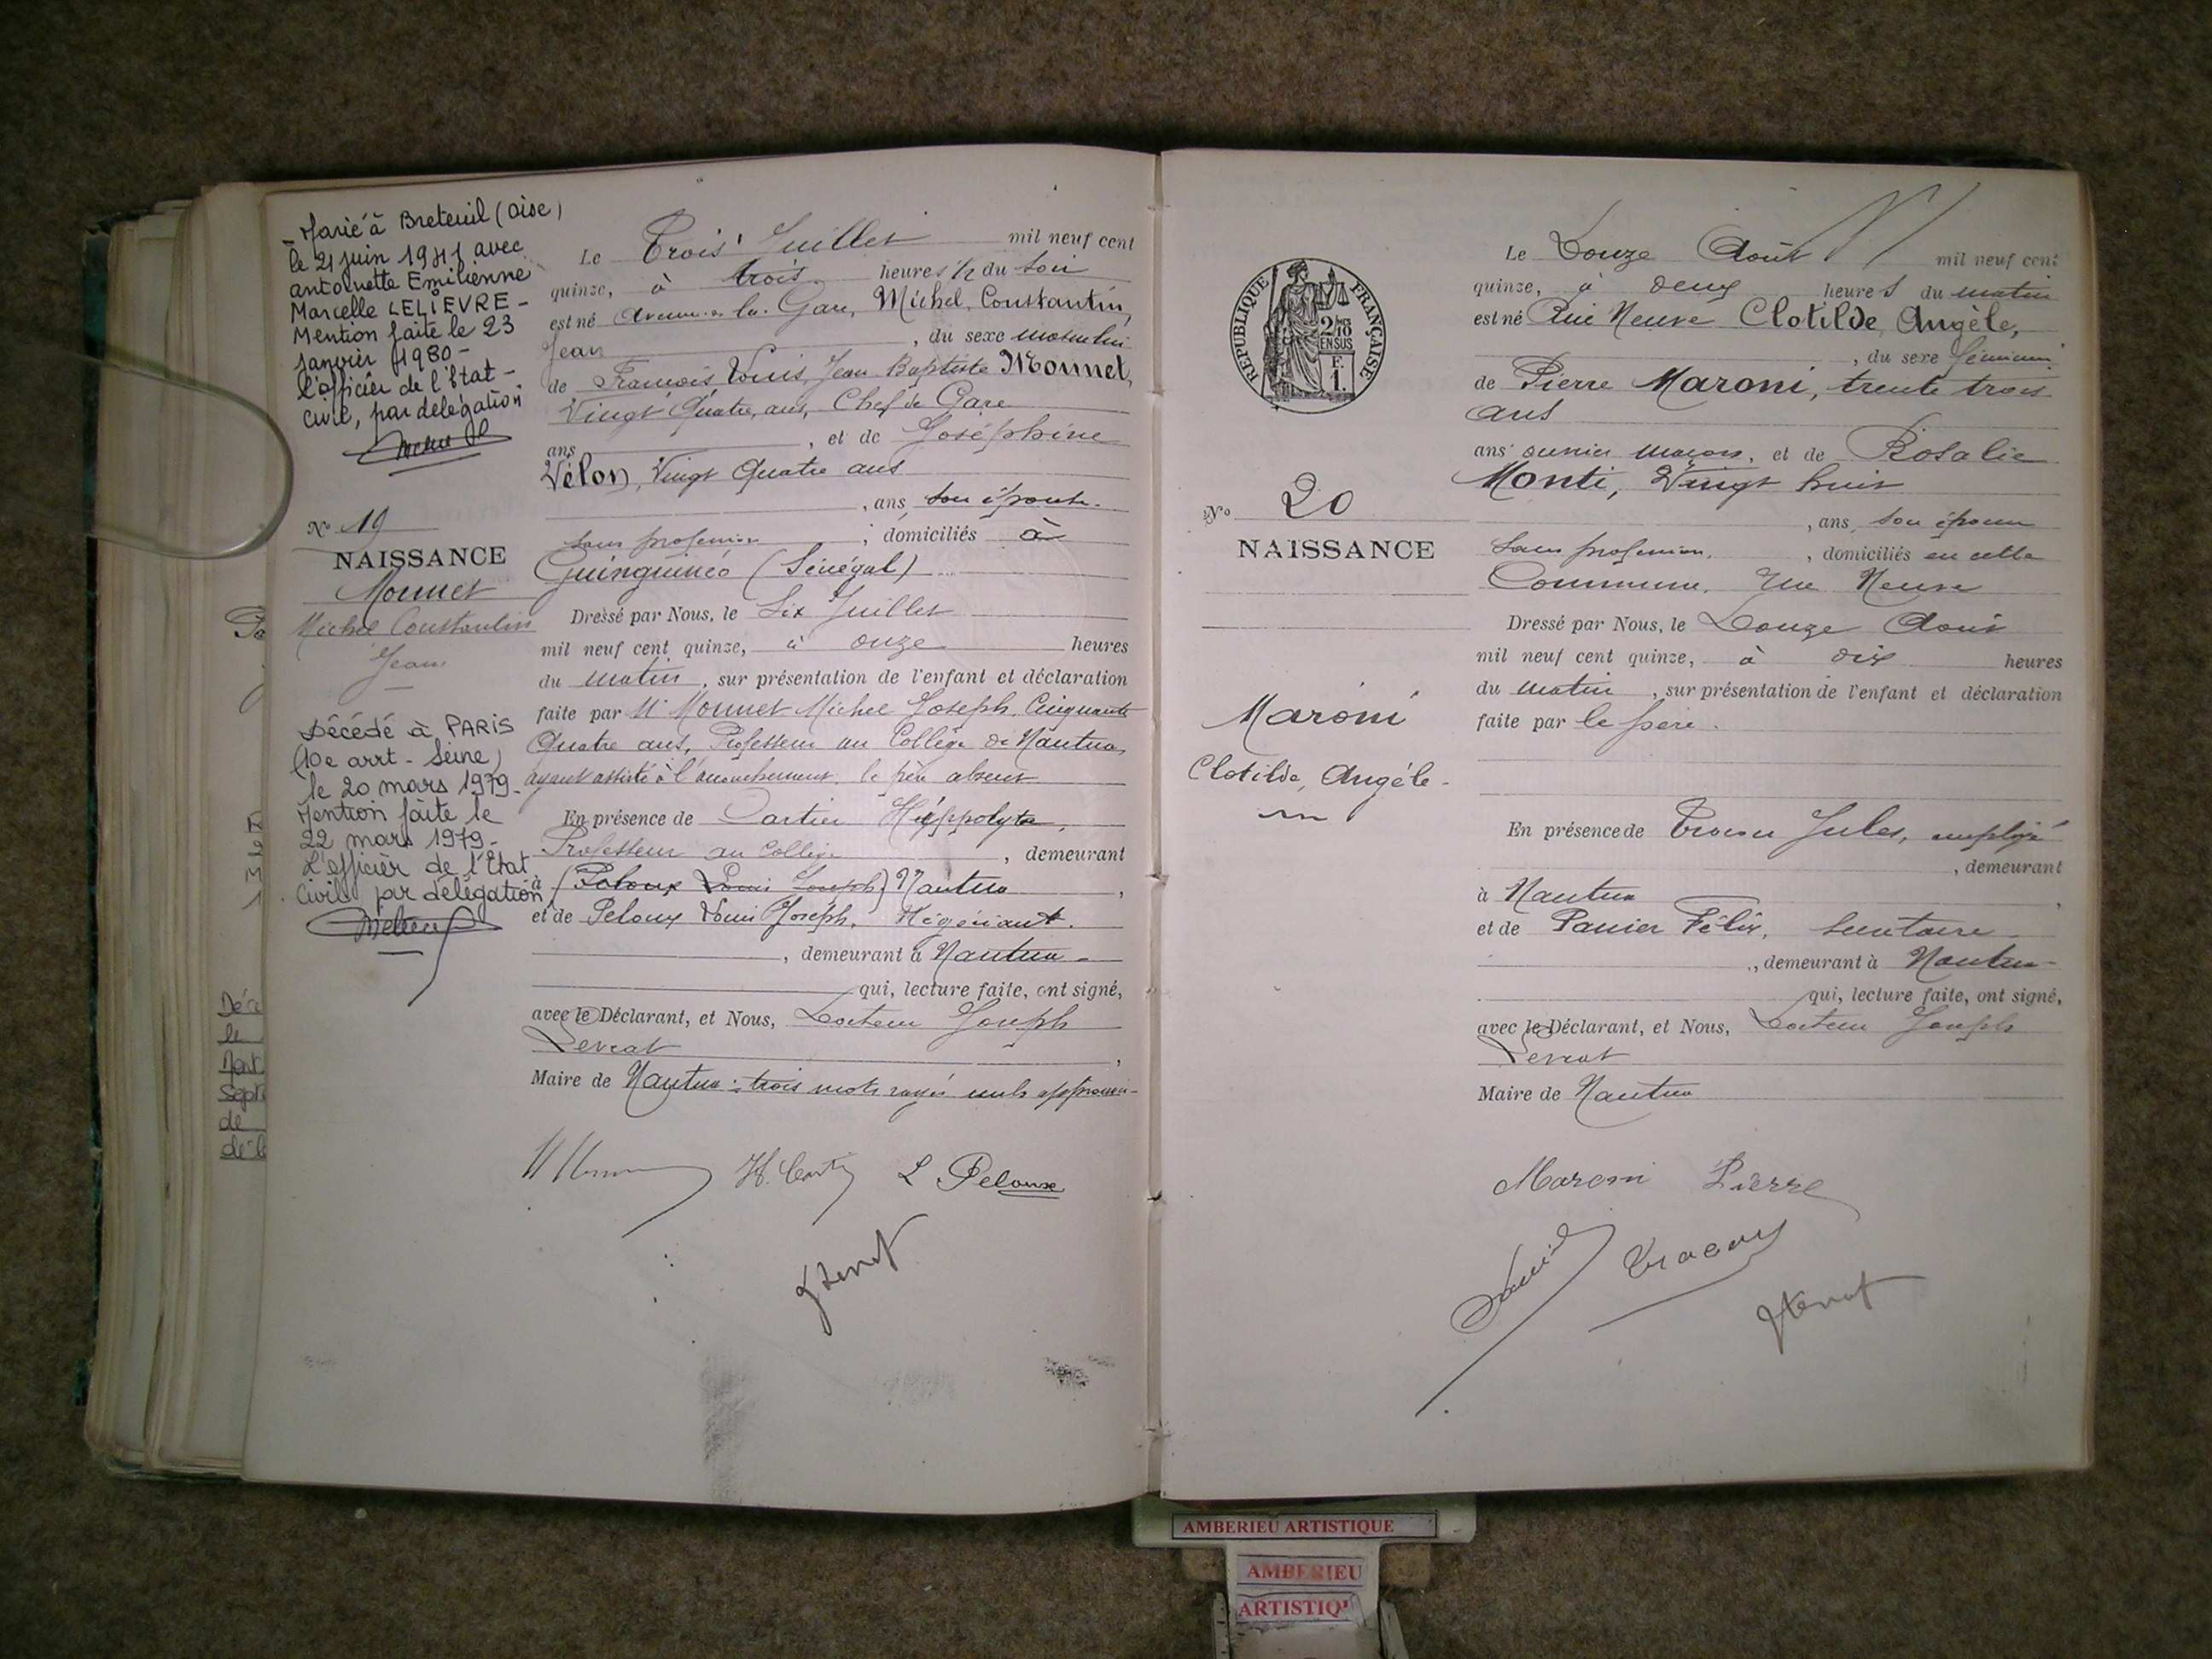 Marié à Breteuil (Oise)
le 21 juin 1941 avec
Antoinette Emilienne
Marcelle LELIEVRE -
Mention faite le 23
janvier 1980 -
L'officier de l'Etat -
civil, par délégation
N° 19
NAISSANCE
Monnet
Michel Constantin
Jean
Décédé à PARIS
(10e arrt - Seine)
le 20 mars 1979 -
Mention faite le
22 mars 1979 -
L'officier de l'Etat
Civil par délégation
Le Trois Juillet mil neuf cent
quinze, à trois heures 1/2 du soir
est né Avenue de la Gare, Michel, Constantin,
Jean , du sexe masculin
de François Louis, Jean Baptiste Monnet,
Vingt Quatre, ans, Chef de Gare
ans , et de Joséphine
Vélon, Vingt Quatre ans
, ans, son épouse.
sans profession ; domiciliés à
Guinguinéo (Sénégal)
Dressé par Nous, le Six Juillet
mil neuf cent quinze, à onze heures
du matin, sur présentation de l'enfant et déclaration
faite par M. Monnet Michel Joseph, Cinquante
Quatre ans, Professeur au Collège de Nantua,
ayant assisté à l'accouchement, le père absent
En présence de Cartier Hippolyte,
Professeur au Collège , demeurant
à (Peloux Louis Joseph) Nantua ,
et de Peloux Louis Joseph, Négociant.
, demeurant à Nantua -
qui, lecture faite, ont signé,
avec le Déclarant, et Nous, Docteur Joseph
Levrat ,
Maire de Nantua : trois mots rayés nuls approuvés -
L Peloux
RÉPUBLIQUE FRANÇAISE
2/10
EN SUS
F.
1.
N° 20
NAISSANCE
Maroni
Clotilde, Angèle -
Le Douze Août mil neuf cent
quinze, à deux heures du matin
est né Rue Neuve Clotilde, Angèle,
, du sexe féminin
de Pierre Maroni, trente trois
ans
ans ouvrier maçon, et de Rosalie
Monti, Vingt huit
, ans, son épouse
sans profession. , domiciliés en cette
Commune, rue Neuve
Dressé par Nous, le Douze Août
mil neuf cent quinze, à dix heures
du matin , sur présentation de l'enfant et déclaration
faite par le père.
En présence de Jules, employé
, demeurant
à Nantua ,
et de Panier Félix, secrétaire -
, demeurant à Nantua -
qui, lecture faite, ont signé,
avec le Déclarant, et Nous, Docteur Joseph
Levrat
Maire de Nantua
Maroni Pierre
AMBERIEU ARTISTIQUE
AMBERIEU
ARTISTIQ